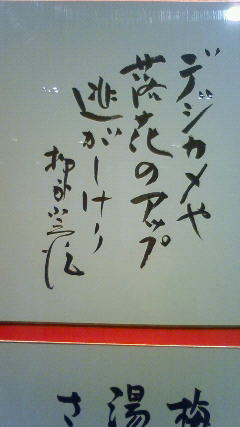 デジカメや
落花のアップ
逃がしけり
柳家
梅
湯
さ